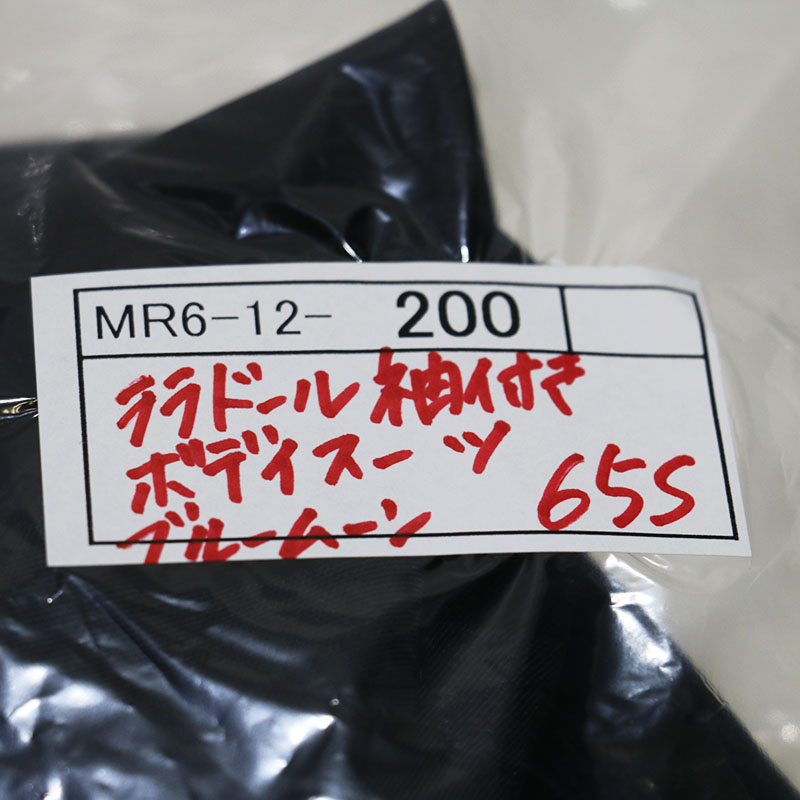 MR6-12- 200
ララドール 袖付き
ボディスーツ 65S
ブルームーン